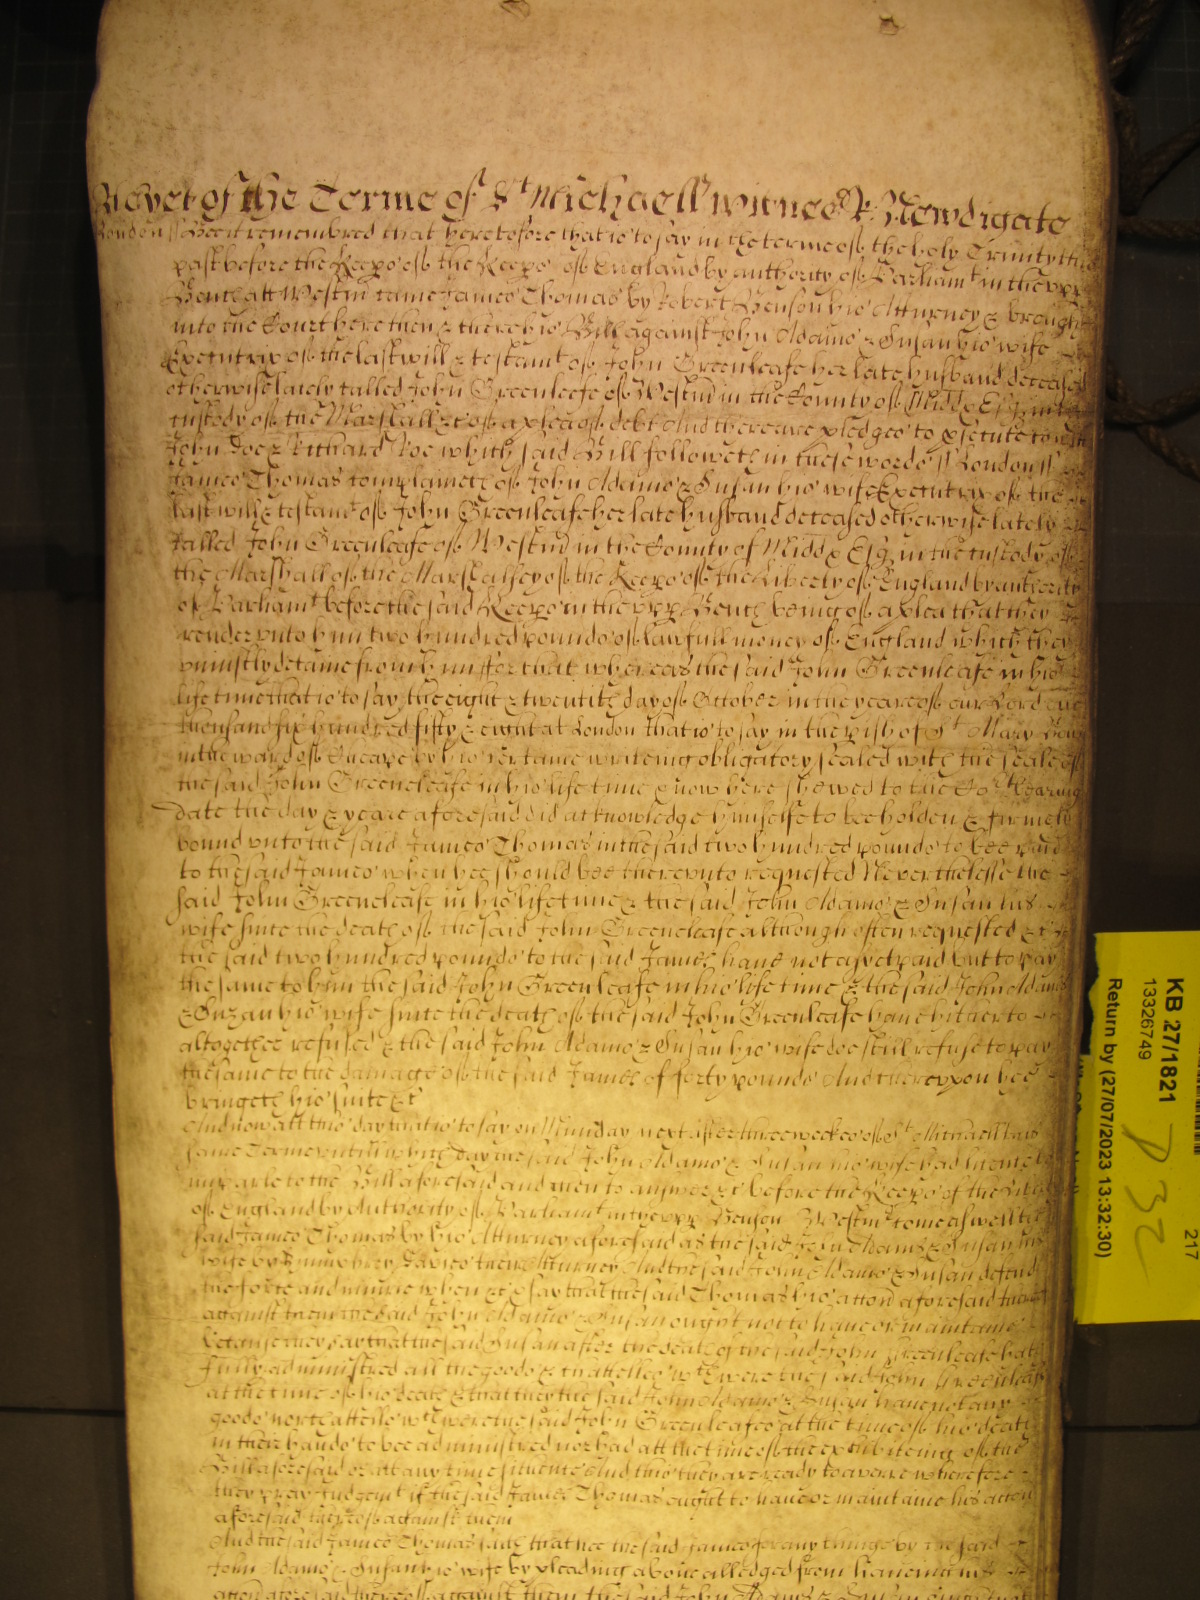 As yet of the Terme of St Michaell witnes R: Newdigate
London ss Bee it remembred that heretofore that is to say in the terme of the holy Trinity
past before the Keeps of the Keeps of England by authority of Parliamt in the upp
Bench att Westm came James Thomas by Robert Benson his Atturney & brought
into the Court here then & there his Bill against John Adams & Susan his wife
Executrix of the last will & testamt of John Greeneleafe her late husband deceased
otherwise lately called John Greeneleafe of Westend in the County of Midd Esq in the
custody of the Marshall &c of a plea of debt And there are pledges to psecute to witt
John Doe & Richard Roe which said Bill followeth in these words ss London ss
James Thomas complaineth of John Adams & Susan his wife Executrix of the
last will & testamt of John Greeneleafe her late husband deceased otherwise lately
called John Greeneleafe of Westend in the County of Midd Esq in the custody of
the Marshall of the Marshalsey of the Keeps of the Liberty of England by authority
of Parliamt before the said Keeps in the upp Bench being of a plea that they
render unto him two hundred pounds of lawfull money of England which they
uniustly detaine from him ffor that whereas the said John Greeneleafe in his
life time that is to say the eight & twentith day of October in the yeare of our Lord one
thousand six hundred fifty & eight at London that is to say in the pish of St Mary Bow
in the ward of Cheape by his certaine writeing obligatory sealed with the seale of
the said John Greeneleafe in his life time & now here shewed to the Cort beareing
date the day & yeare aforesaid did acknowledge himselfe to bee holden & firmely
bound unto the said James Thomas in the said two hundred pounds to bee paid
to the said James when hee should bee thereunto requested Neverthelesse the
said John Greeneleafe in his life time & the said John Adams & Susan his
wife since the death of the said John Greeneleafe although often requested &c
the said two hundred pounds to the said James have not as yet paid but to pay
the same to him the said John Greeneleafe in his life time & the said John Adams
& Suzan his wife since the death of the said John Greeneleafe have hitherto
altogether refused & the said John Adams & Susan his wife doe still refuse to pay
the same to the damage of the said James of forty pounds And thereupon hee
bringeth his suite &c
And now att this day that is to say on Munday next after three weekes of St Michaell this
same Terme untill which day the said John Adams & Susan his wife had licence to
imparle to the Bill aforesaid and then to answer &c before the Keeps of the Liberty
of England by Authority of Parliamt in the upp Bench att Westmr come aswell the
said James Thomas by his Atturney aforesaid as the said John Adams & Susan his
wife by Humphrey Davies their Atturney And the said John Adams & Susan defend
the force and iniurie when &c & say that the said Thomas his accon aforesaid thereof
against them the said John Adams & Susan ought not to have or maintaine
because they say that the said Susan after the death of the said John Greeneleafe hath
fully administred all the goods & chattells wch were the said John Greeneleafe
at the time of his death & that they the said John Adams & Susan have not any
goods nor chattells wch were the said John Greeneleafes at the time of his death
in their hands to bee administred nor had att the time of the exhibiteing of the
Bill aforesaid or att any time since And this they are ready to averre wherefore
they pray Judgemt if the said James Thomas ought to have or maintaine his accon
aforesaid thereof against them
And the said James Thomas saith that hee the said James for any thinge by the said
John Adams & Susan his wife by pleading above alledged from haveing his
accon aforesaid thereof against them the said John Adams & Susan
KB 27/1821
13326749
Return by (27/07/2023 13:32:30)
217
D 32